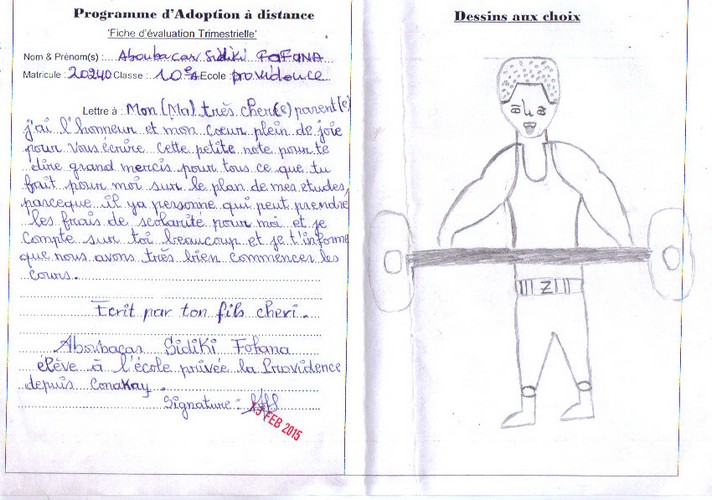 Programme d'Adoption à distance
'Fiche d'évaluation Trimestrielle'
Nom & Prénom(s) : Aboubacar Sidiki FOFANA
Matricule : 20240 Classe : 10e A Ecole : providence
Lettre à : Mon (Ma) très cher(e) parent(e)
j'ai l'honneur et mon cœur plein de joie
pour vous écrire cette petite note pour te
dire grand mercis pour tous ce que tu
fait pour moi sur le plan de mes études,
parceque il ya personne qui peut prendre
les frais de scolarité pour moi et je
compte sur toi beaucoup et je t'informe
que nous avons très bien commencer les
cours.
Ecrit par ton fils cheri.
Aboubacar Sidiki Fofana
élève à l'école privée la Providence
depuis Conakry.
Signature :
FEB 2015
Dessins aux choix
Z